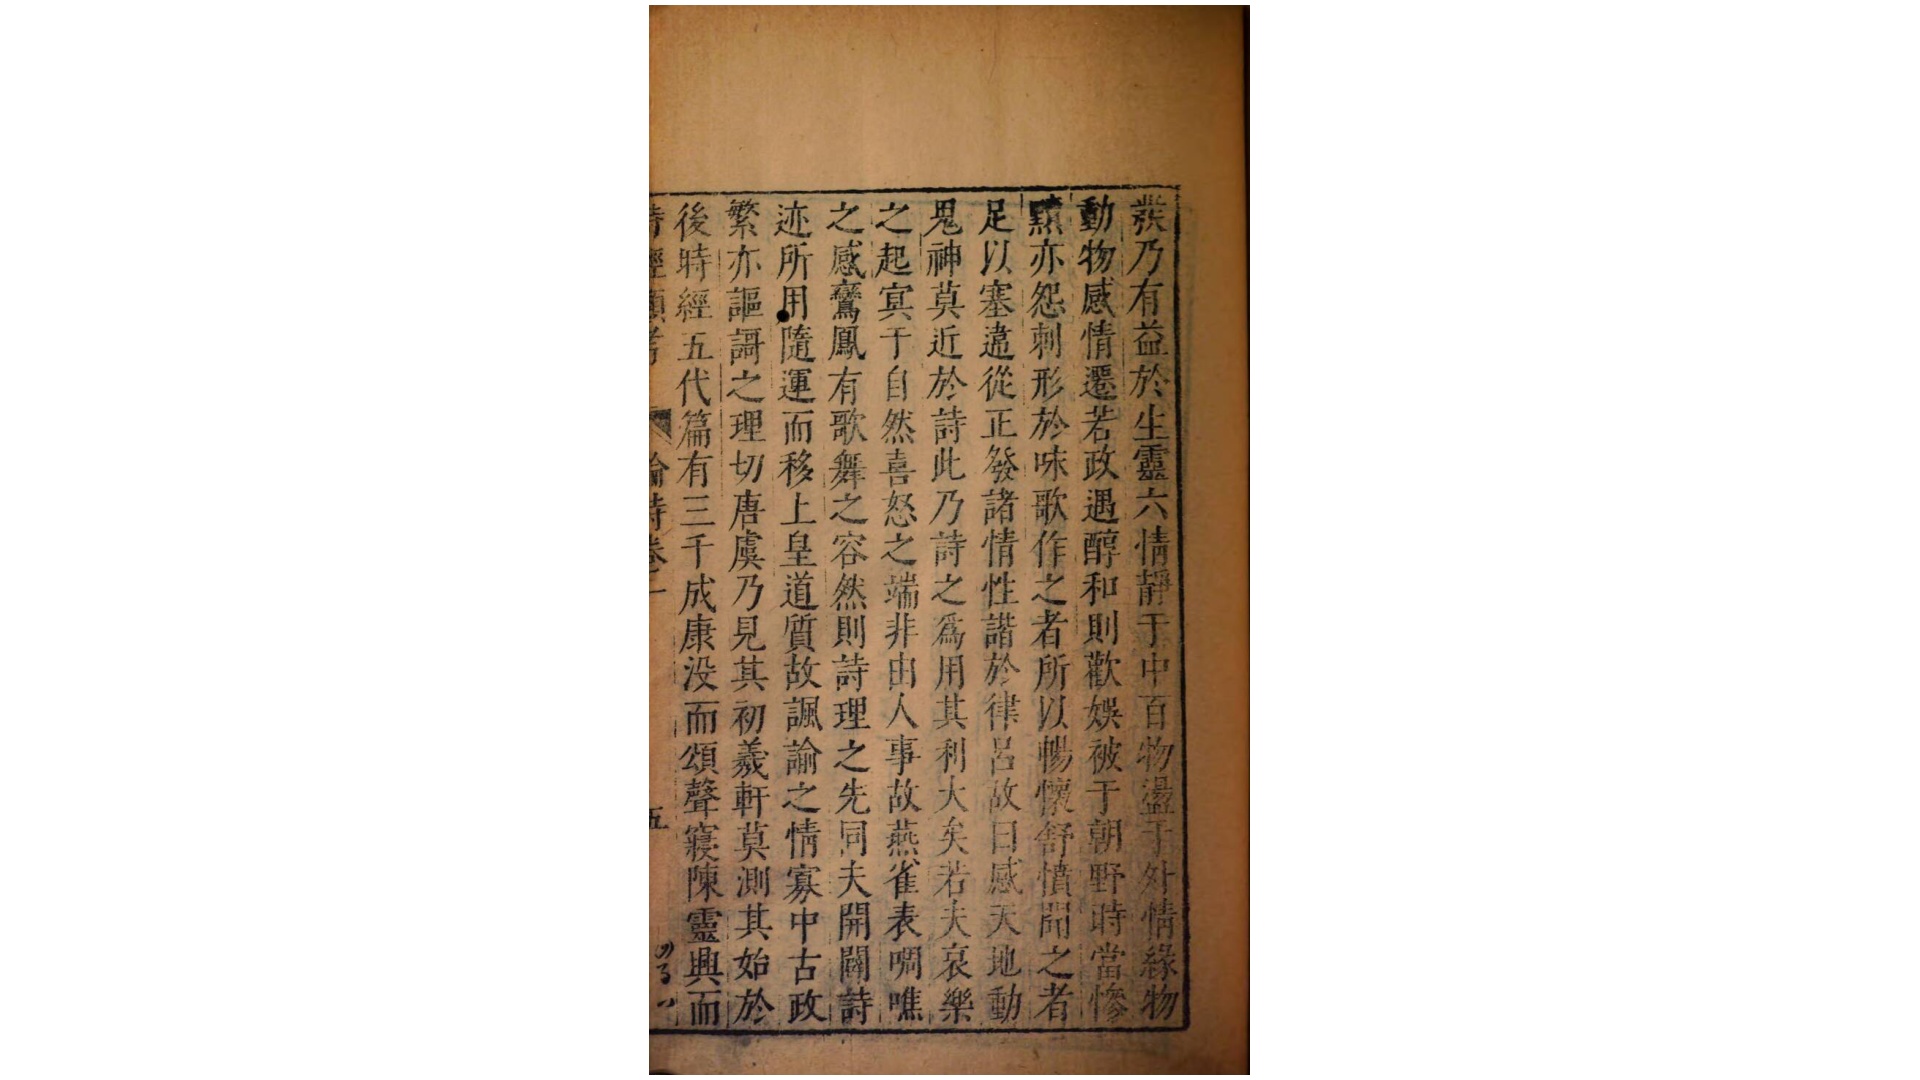 裝乃有益於生靈六情靜于中百物盪于外情緣物
動物感情遷若政遇醇和則歡娛被于朝野時當慘
黷亦怨刺形於咏歌作之者所以暢懷舒憤聞之者
足以塞違從正發諸情性諧於律呂故曰感天地動
鬼神莫近於詩此乃詩之爲用其利大矣若夫哀樂
之起冥于自然喜怒之端非由人事故燕雀表啁噍
之感鸞鳳有歌舞之容然則詩理之先同夫開闢詩
迹所用隨運而移上皇道質故諷諭之情寡中古政
繁亦謳謌之理切唐虞乃見其初羲軒莫測其始於
後時經五代篇有三千成康没而頌聲寢陳靈興而
詩經類考 論詩卷一 五